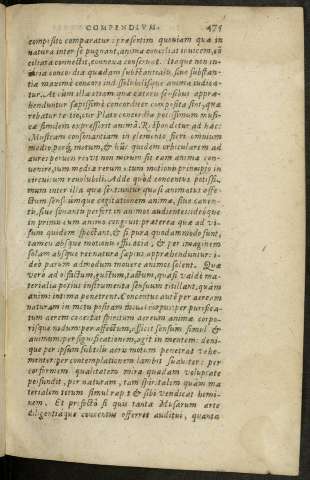 COMPENDIVM. 475
composito comparatur: præsertim quoniam quæ in
natura inter se pugnant, anima conciliat inuicem, cō
ciliata connectit, connexa conseruat. Itaque non in-
iuria concordia quædam substantialis, siue substan-
tia maximè concors indissolubilisque anima iudica-
tur. At cùm illa etiam quæ cæteris sensibus appræ-
henduntur sæpissimè concorditer composita sint, quæ
rebatur Plato concordia potissimum musi-
cæ similem expresserit animā. Respondetur ad hæc:
Musicam consonantiam in elemento fieri omnium
medio, perque motum, & hūc quidem orbicularem ad
aures peruenire: vt non mirum sit eam animæ conue-
nire, tum mediæ rerum, tum motionis principio in
circuitum reuolubili. Adde quòd concentus potissi-
mum inter illa quæ sentiuntur quasi animatus affe-
ctum sensuumque cogitationem animæ, siue canen-
tis, siue sonantis perfert in animos audientes: ideoque
in primis cum animo congruit. Præterea quæ ad vi-
sum quidem spectant, & si pura quodammodo sunt,
tamen absque motionis efficacia, & per imaginem
solam absque rei natura sæpius apprehenduntur: i-
deo parum admodum mouere animos solent. Quæ
verò ad olfactum, gustum, tactum, quasi valde ma-
terialia potius instrumenta sensuum titillant, quàm
animi intima penetrent. Concentus autē per aeream
naturam in motu positam mouet corpus: per purifica-
tum aerem concitat spiritum aereum animæ corpo-
risque nodum: per affectum, afficit sensum simul &
animum: per significationem, agit in mentem: deni-
que per ipsum subtilis aeris motum penetrat vehe-
menter: per contemplationem lambit suauiter: per
conformem qualitatem mira quadam voluptate
perfundit: per naturam, tam spiritalem quàm ma-
terialem totum simul rapit & sibi vendicat homi-
nem. Et profectò si quis tanta Musarum arte
diligentiaque concentus offerret auditui, quanta